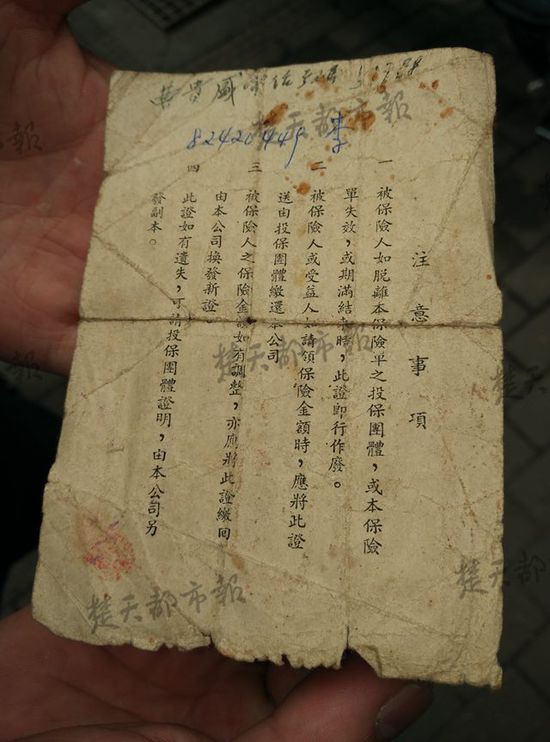 82420449 李
注意事項
一 被保險人如脫離本保險單之投保團體，或本保險
單失效，或期滿結 時，此證即行作廢。
二 被保險人或受益人 請領保險金額時，應將此證
送由投保團體繳還本公司
三 被保險人之保險金 如有調整，亦應將此證繳回
由本公司換發新證
四 此證如有遺失，可請投保團體證明，由本公司另
發副本。
楚天都市報
楚天都市報
楚天都市報
楚天都市